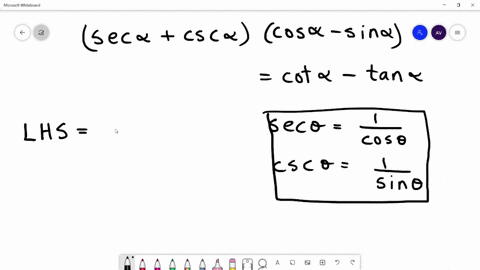 Microsoft Whiteboard
(secα + cscα) (cosα - sinα)
= cotα - tanα
LHS =
secθ = 1/cosθ
cscθ = 1/sinθ
AV